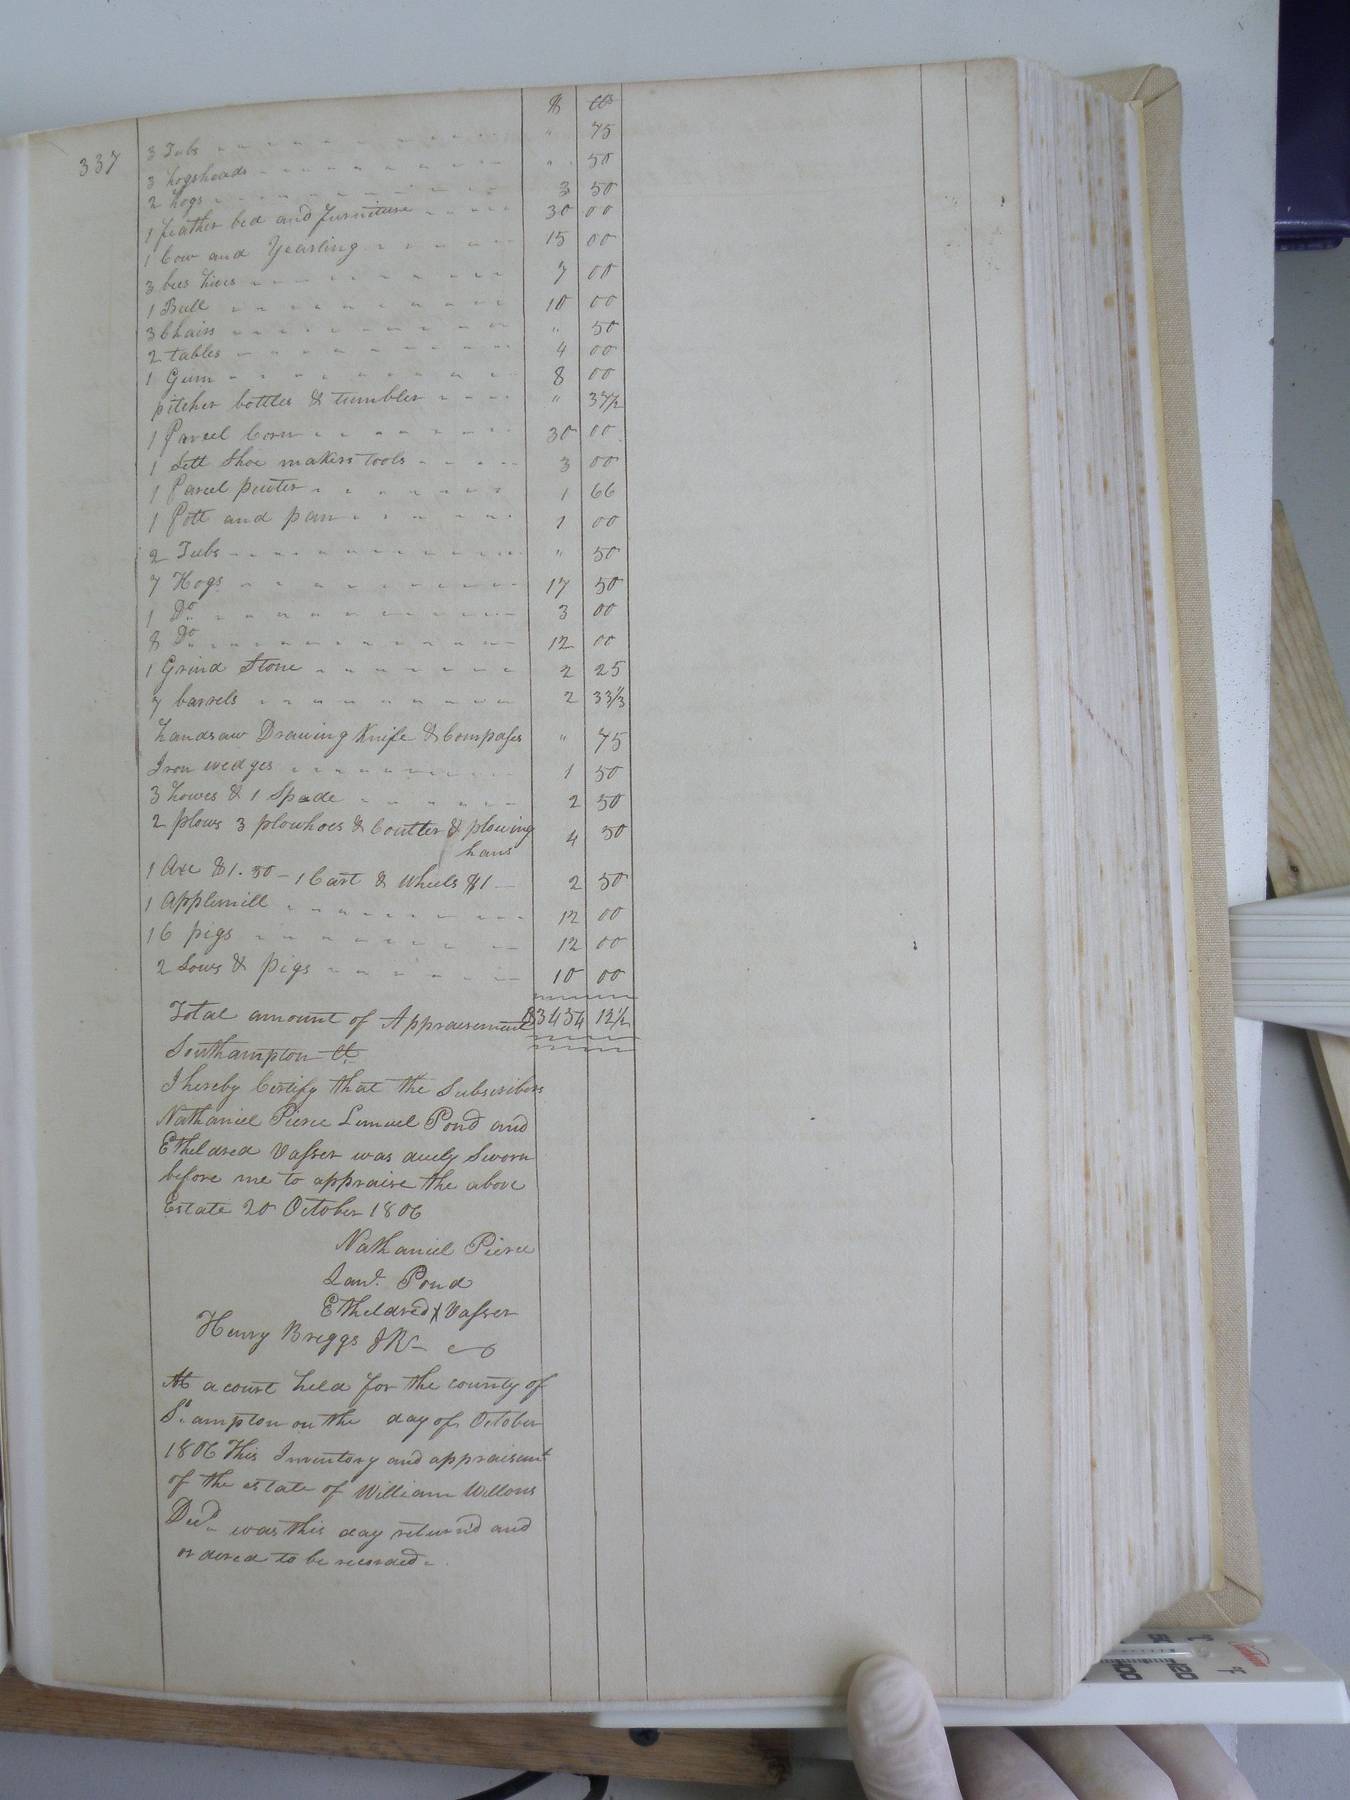 337
$ cts
3 Tubs " 75
3 hogsheads " 50
2 hogs 3 50
1 feather bed and furniture 30 00
1 Cow and Yearling 15 00
3 bees hives 7 00
1 Bull 10 00
3 Chairs " 50
2 tables 4 00
1 Gum 8 00
pitcher bottles & tumbler " 37½
1 Parcel Corn 30 00
1 Sett Shoe makers tools 3 00
1 Parcel pewter 1 66
1 Pott and pan 1 00
2 Tubs " 50
7 Hogs 17 50
1 Do 3 00
8 Do 12 00
1 Grind Stone 2 25
7 barrels 2 33⅓
handsaw Drawing Knife & Compasses " 75
Iron wedges 1 50
3 howes & 1 Spade 2 50
2 plows 3 plowhoes & Coulter & plowing
hans 4 50
1 Axe $1.50 – 1 Cart & Wheels $1 2 50
1 Applemill 12 00
16 pigs 12 00
2 Sows & pigs 10 00
Total amount of Appraisement $3454 12½
Southampton Ct
I hereby Certify that the Subscribers
Nathaniel Pierce Lemuel Pond and
Etheldred Vasser was duely Sworn
before me to appraise the above
Estate 20 October 1806
Nathaniel Pierce
Pond
Etheldred X Vasser
Henry Briggs
At a court held for the county of
So. ampton on the day of October
1806 This Inventory and appraisemt
of the estate of William Wellons
Decd was this day return'd and
ordered to be recorded.
50
100
120
°C
°F